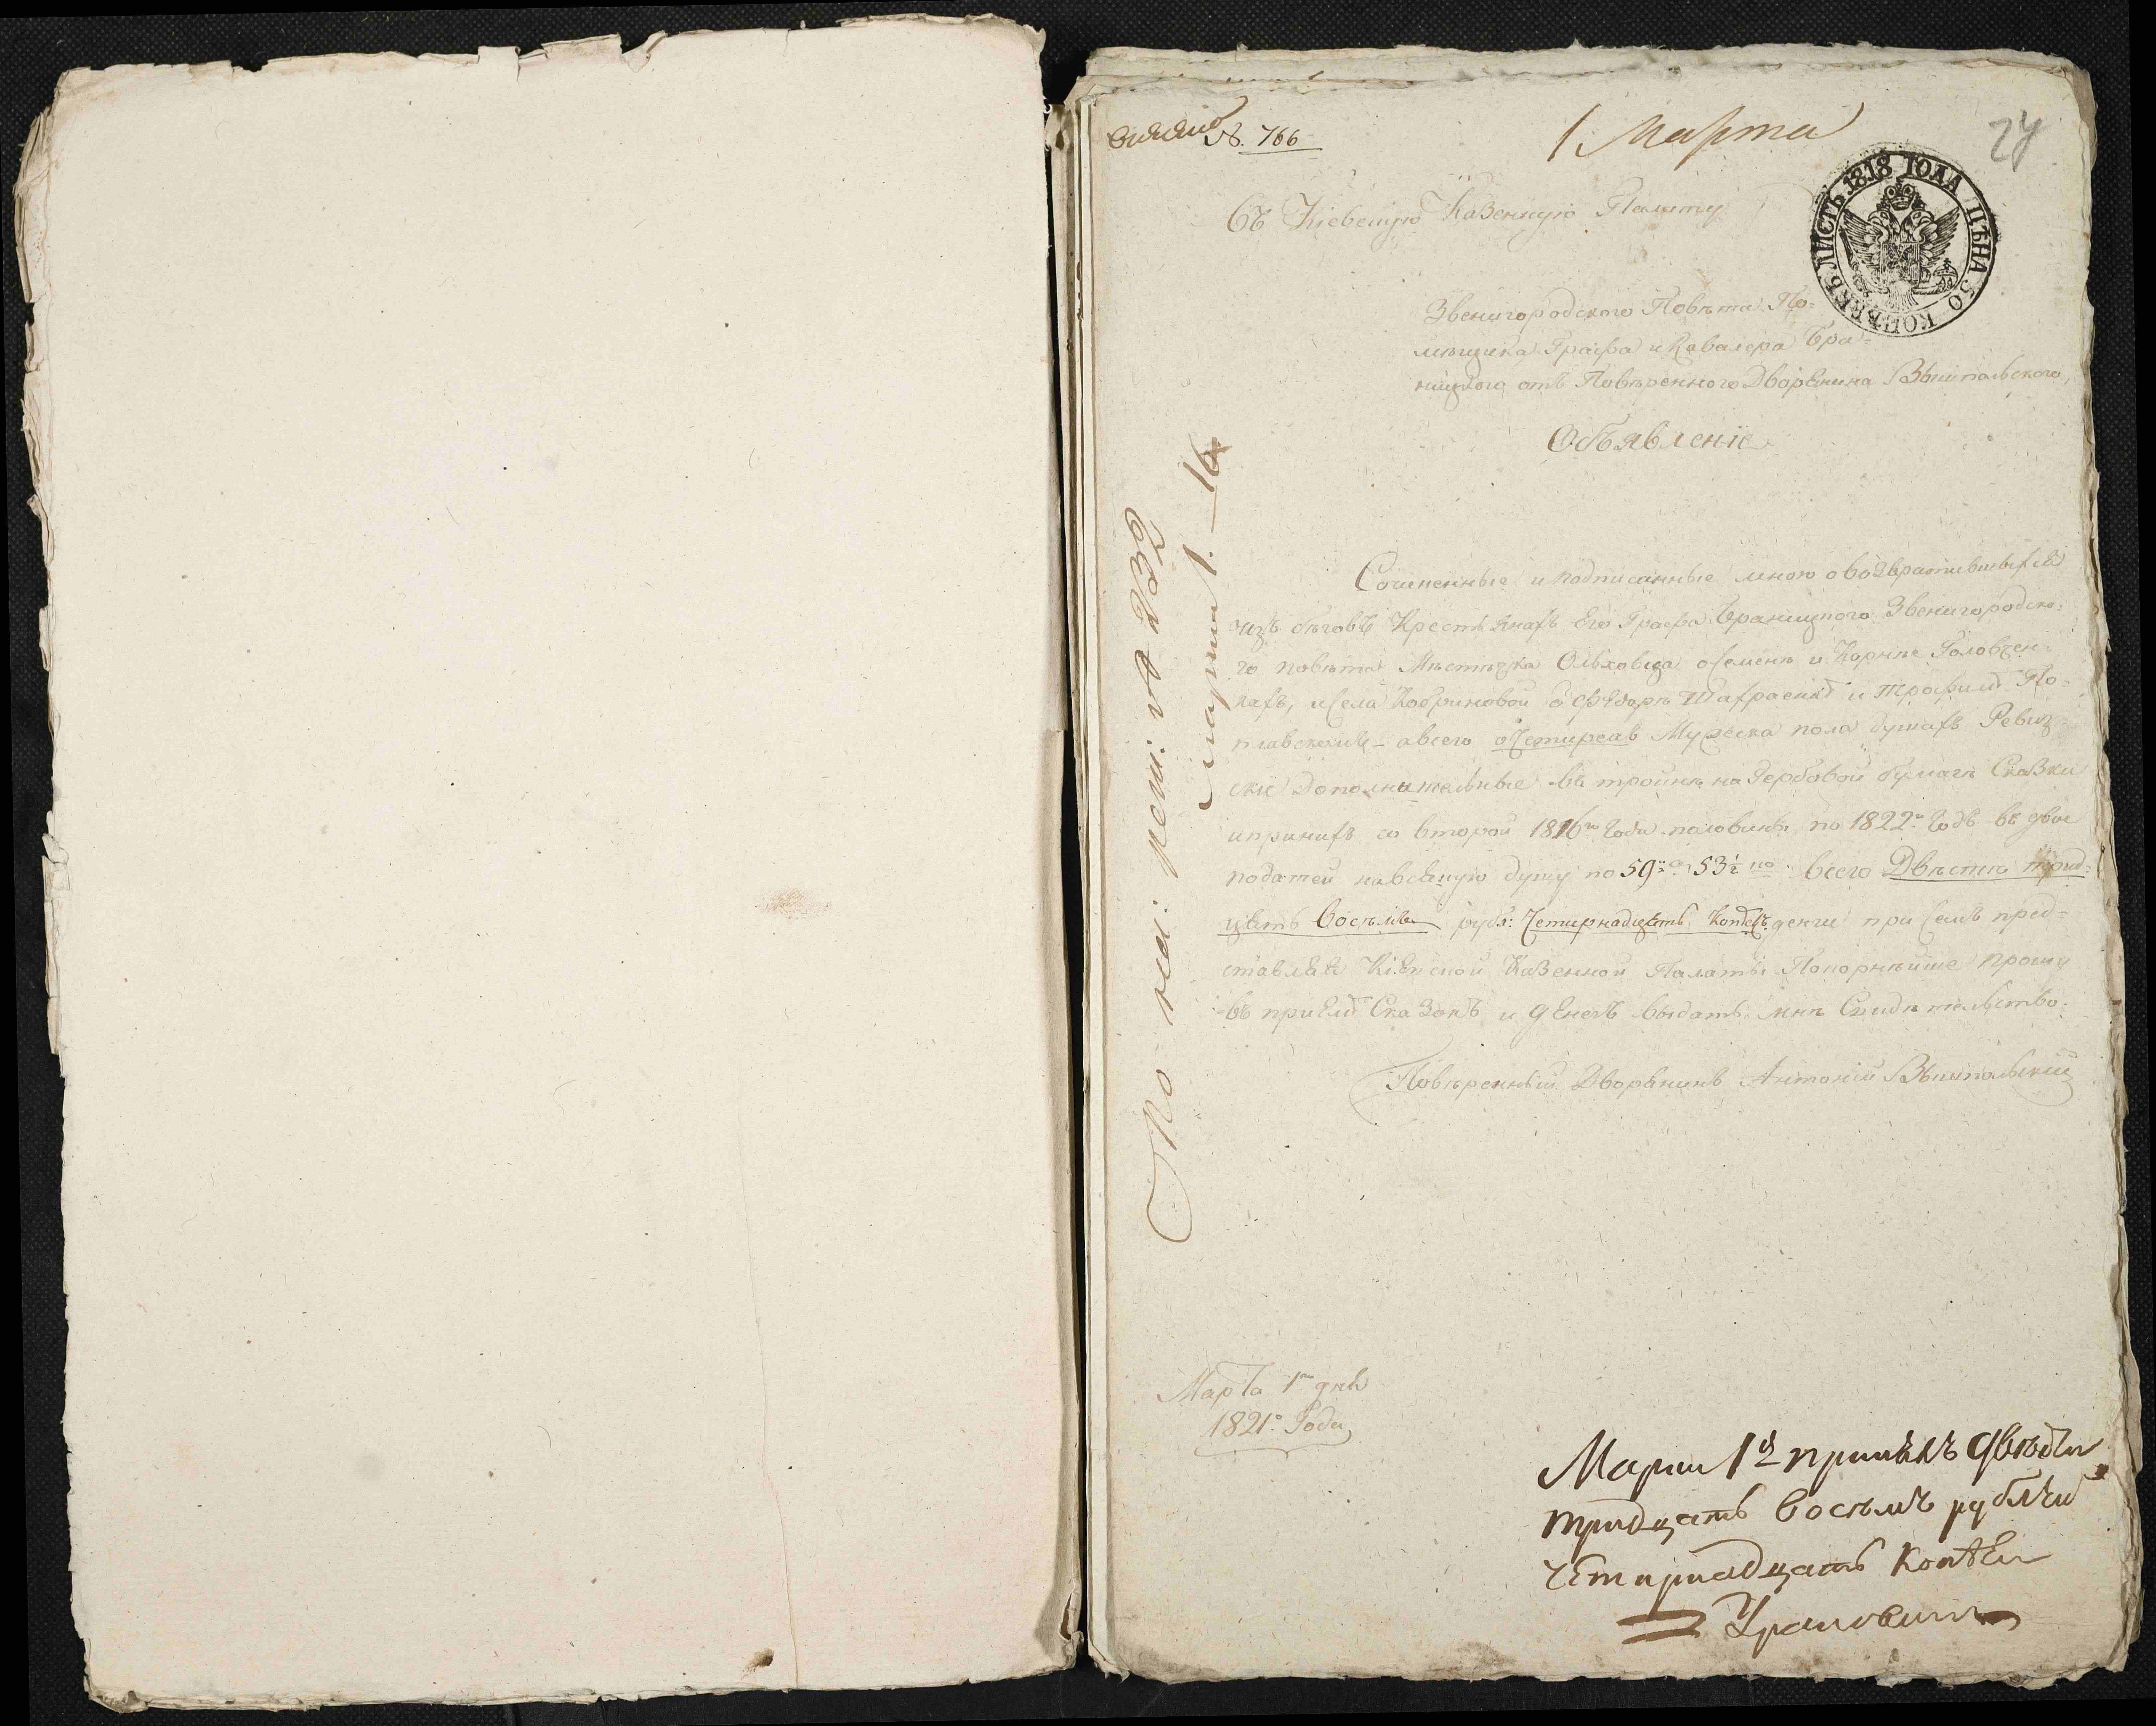 №. 766
1 Марта
27
ЛИСТЪ 1818 ГОДА ЦѢНА 50 КОПѢЕКЪ
Въ Кіевскую Казенную Палату
Звенигородского Повѣта По-
мещика Графа и Кавалера Бра-
ницкого отъ Повѣренного Дворянина
Объявленіе
Сочиненные и подписанные мною о возвратившихся
изъ бѣговъ Крестьянахъ Его Графа Браницкого Звенигородско-
го повѣта Мѣстечка Ольховца о Семене и Корнѣе Головчен-
кахъ, и Села Кобриновой о Ѳедорѣ и Трофиме По-
а всего о Четирехъ Мужеска пола душахъ Ревиз-
скіе Дополнительные въ тройнѣ на Гербовой бумагѣ Сказки
и при нихъ со второй 1816го Года половины по 1822й Годъ въ двое
податей на всякую душу по 59 53½ ко всего Двѣсти трид-
цять восѣмь рубл: Четирнадцять Копѣекъ денги при Семъ пред-
ставляя Кіевской Казенной Палаты Покорнѣйше прошу
въ пріемѣ Сказокъ и денегъ выдать мнѣ Свидѣтельство.
Повѣренный Дворянинъ Антоній
Марта 1го дня
1821го Года
По 239
Марта 1. 16
Марта 1й принялъ двѣсти
тридцать восѣмь рублей
четирнадцать копѣек